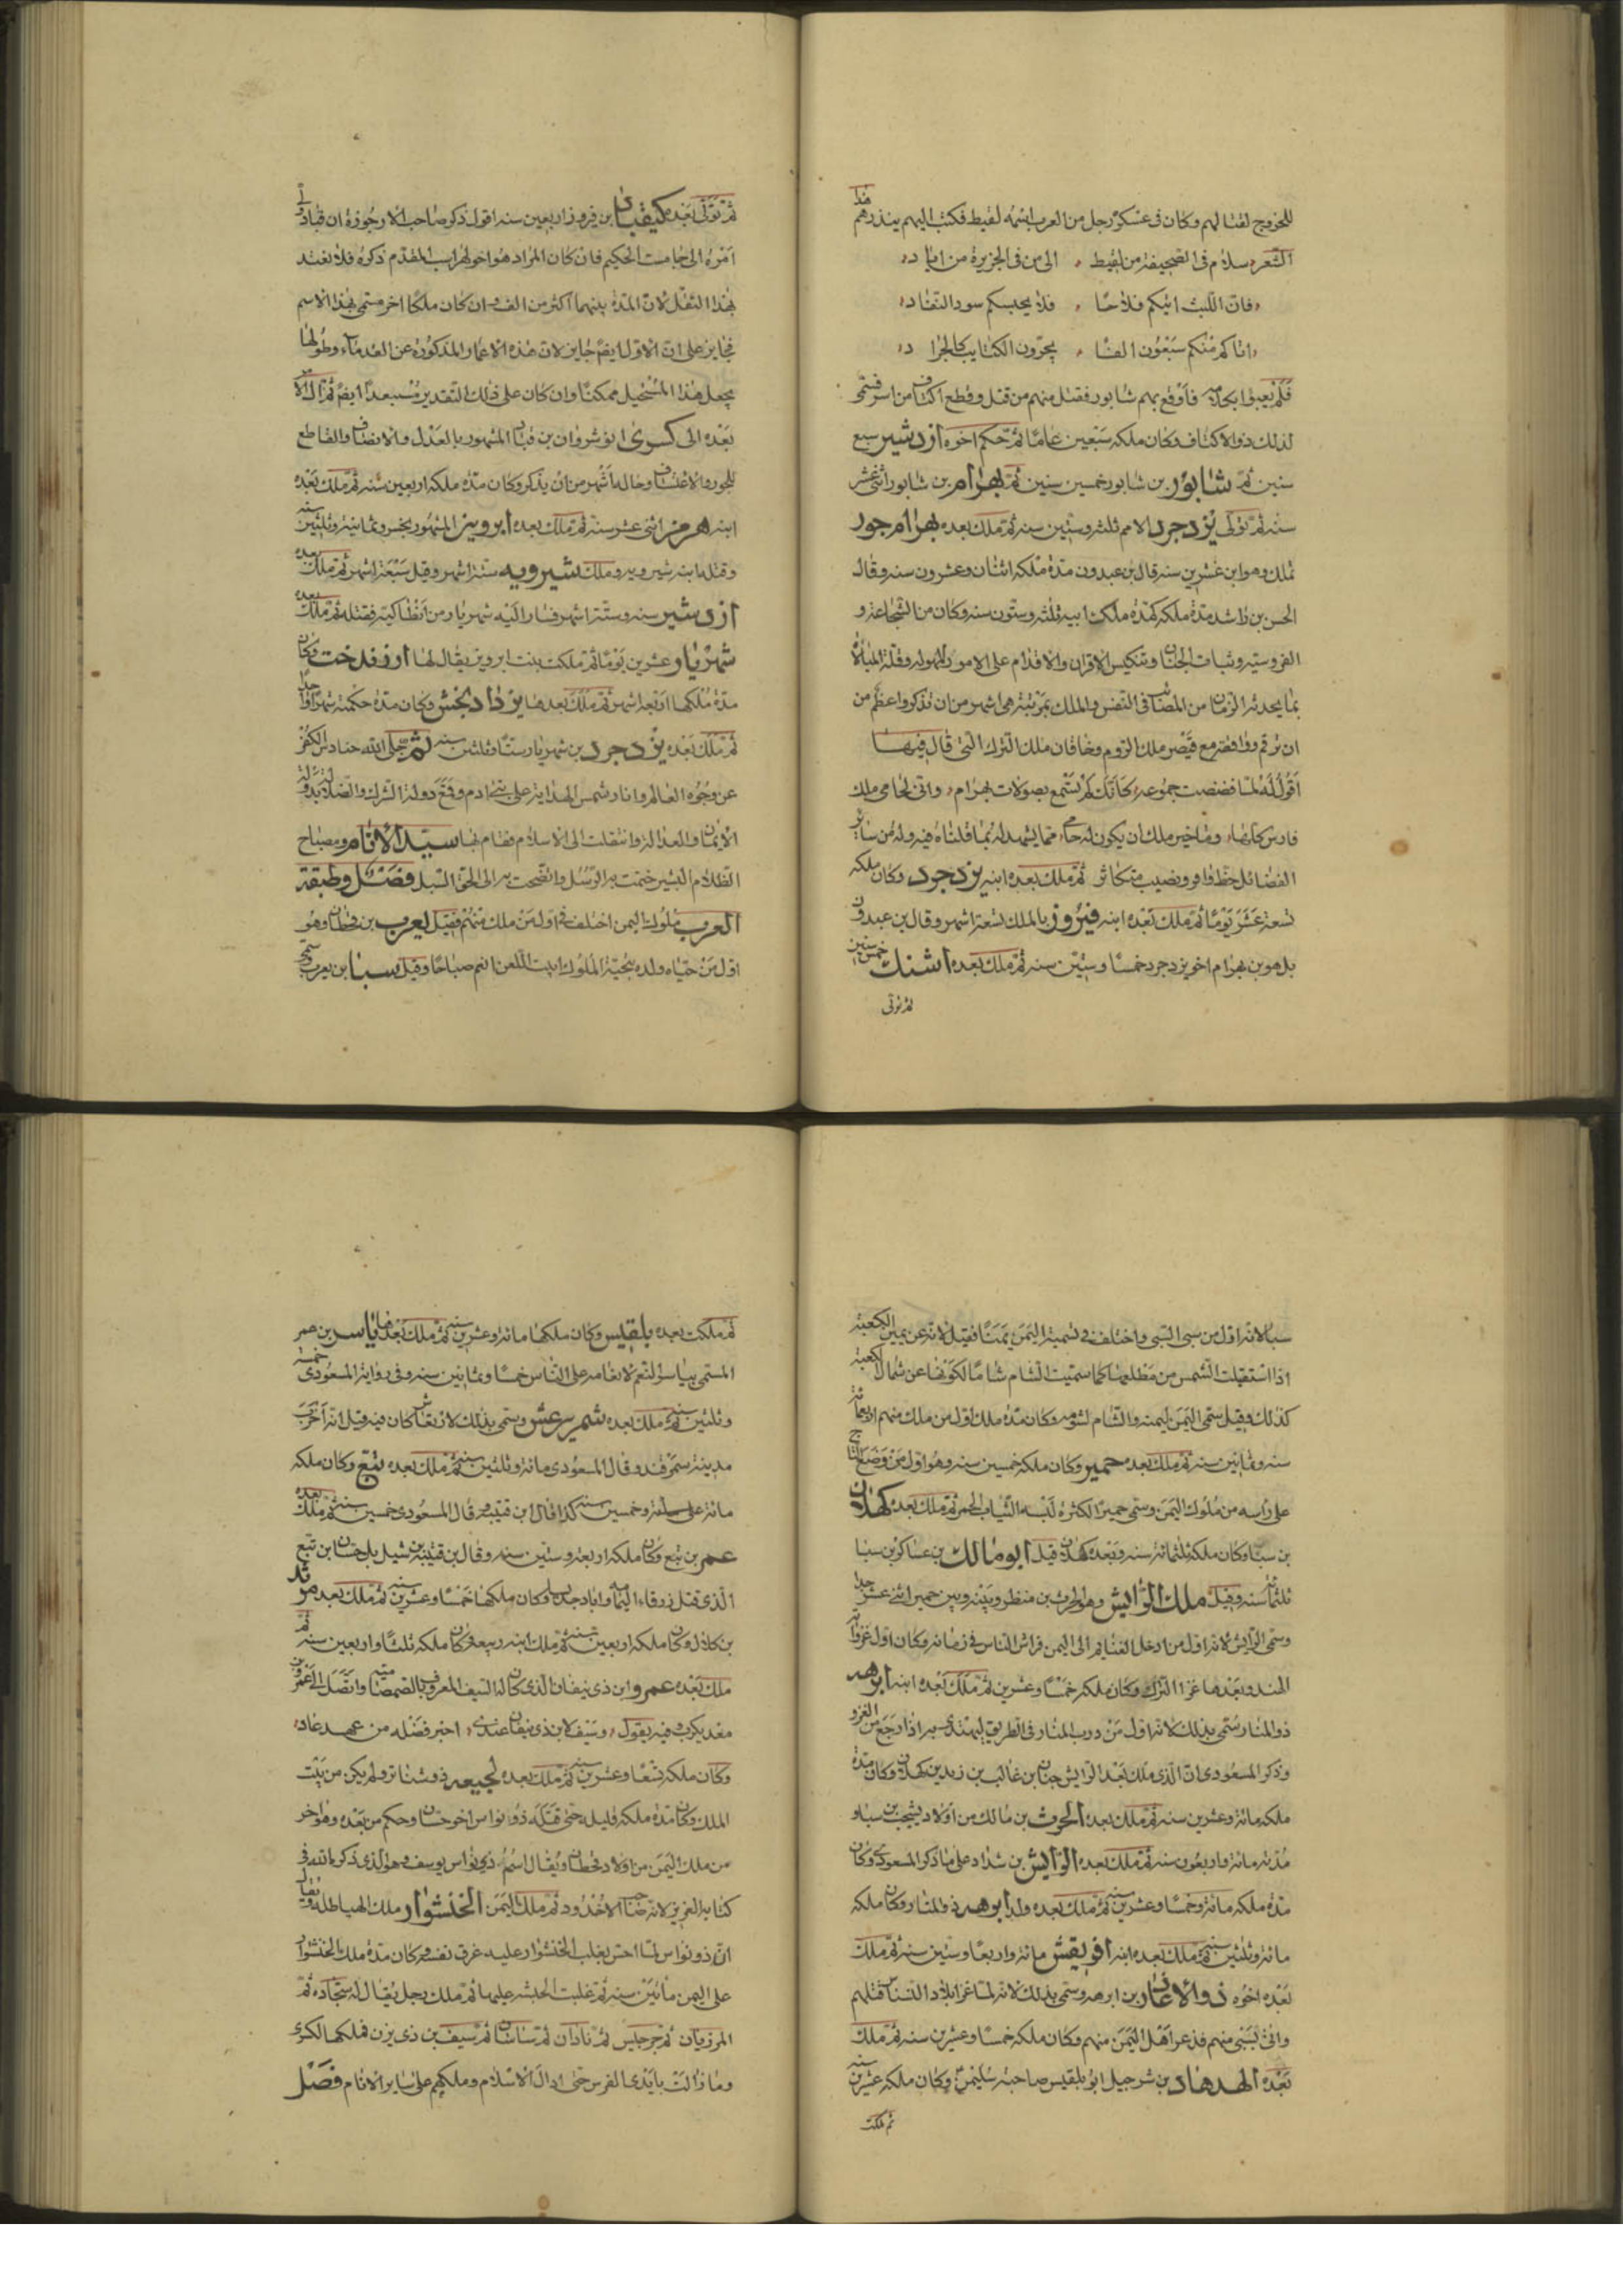 للخروج لقتالهم وكان فى عسكره رجل من العرب اسمه لقيط فكتب اليهم ينذرهم هذا
الشعر سلام فى الصحيفة من لقيط الى من فى الجزيرة من اياد
فان الليث اتيكم فلاحا فلا يحبسكم سود النقاد
اتاكم منكم سبعون الفا يجرون الكتايب كالجراد
فلم يعبوا بكتابه فاوقع بهم شابور فقتل منهم من قتل وقطع اكتاف من اسر فسمى
لذلك ذو الاكتاف وكان ملكه سبعين عاما ثم حكم اخوه ازدشير سبع
سنين ثم شابور بن شابور خمسين سنين ثم بهرام بن شابور اثنى عشر
سنه ثم تولى يزدجرد الاثم ثلثه وستين سنه ثم ملك بعده بهرام جور
تملك وهو ابن عشرين سنه قال بن عبدون مدة ملكه اثنتان وعشرون سنه وقال
الحسن بن راشد مدة ملكه كمدة ملك ابيه ثلثه وستون سنه وكان من الشجاعة و
الفروسيه وثبات الجنان وتنكيس الاقران والاقدام على الامور المهوله وقلة المبالاة
بما يحدثه الزمان من المصائب فى النفس والملك بمرتبة هى اشهر من ان تذكر واعظم من
ان ترقم ووقائعه مع قيصر ملك الروم وخاقان ملك الترك التى قال فيها
اقول له لما فضضت جموعه كانك لم تسمع بصولات بهرام وانى لحامى ملك
فارس كلها وما خير ملك ان يكون له حامى مما يشهد له بما قلناه فيه وله من ساير
الفضائل حظ وافر ونصيب متكاثر ثم ملك بعده ابنه يزدجرد وكان ملكه
تسعة عشر يوما ثم ملك بعده ابنه فيروز بالملك تسعة اشهر وقال بن عبدون
بل هو بن بهرام اخو يزدجرد خمسا وستين سنه ثم ملك بعده اشنك خمس سنين
ثم تولى
ثم تولى بعده كيقباد بن فيروز اربعين سنه اقول ذكر صاحب الارجوزة ان قباد ولى
امره الى جامست الحكيم فان كان المراد هو اخو لهراسب المقدم ذكره فلا نعتد
بهذا النقل لان المدة بينهما اكثر من الف وان كان ملكا اخر مسمى بهذا الاسم
فجايز على ان الاول ايضا جايز لان هذه الاعمار المذكورة عن القدماء وطولها
يجعل هذا المستحيل ممكنا وان كان على ذلك التقدير مستبعدا ايضا ثم ال الامر
بعده الى كسرى انوشروان بن قباد المشهور بالعدل والانصاف والقاطع
للجور والاعتساف وحاله اشهر من ان يذكر وكان مدة ملكه اربعين سنه ثم ملك بعده
ابنه هرمز اثنى عشر سنة ثم ملك بعده ابرويز المشهور بخسرو ثمانية وثلثين سنه
وقتله ابنه شيرويه وملك شيرويه ستة اشهر وقيل سبعة اشهر ثم ملك بعده
ازدشير سنه وستة اشهر فسار اليه شهريار من انطاكية فقتله ثم ملك بعده
شهريار عشرين يوما ثم ملكت بنت ابرويز يقال لها ارزفدخت وكان
مدة ملكها اربعة اشهر ثم ملك بعدها يزدادبخش وكان مدة حكمته شهرا واحدا
ثم ملك بعده يزدجرد بن شهريار ستا وثلثين سنه ثم جلى الله حنادس الكفر
عن وجوه العالم وانار شمس الهداية على بنى ادم وقع دولة الشرك والضلالة بدولة
الايمان والعدالة وانتقلت الى الاسلام فقام بها سيد الانام ومصباح
الظلام البشير ختمت به الرسل واتضحت به الى الحق السبل فصل وطبقة
العرب ملوك اليمن اختلف فى اول من ملك منهم فقيل يعرب بن قحطان وهو
اول من حياه ولده بتحية الملوك ابيت اللعن انعم صباحا وقيل سبا بن يعرب سمى
سبا لانه اول من سبى السبى واختلف فى تسمية اليمن يمنا فقيل لانه عن يمين الكعبة
اذا استقبلت الشمس من مطلعها كما سميت الشام شاما لكونها عن شمال الكعبة
كذلك وقيل سمى اليمن ليمنه والشام لشومه وكان مدة ملك اول من ملك منهم اربعمائة
سنه وثمانين سنه ثم ملك بعده حمير وكان ملكه خمسين سنه وهو اول من وضع التاج
على راسه من ملوك اليمن وسمى حميرا لكثرة لبسه الثياب الحمر ثم ملك بعده كهلان
بن سبا وكان ملكه ثلثمائة سنه وبعده كهلان قيل ابومالك بن عساكر بن سبا
ثلثمائة سنه وقيل ملك الرايش وهو الحرث بن منظر وبينه وبين حمير اثنى عشر جدا
وسمى الرايش لانه اول من ادخل الغنايم الى اليمن فراش الناس فى زمانه وكان اول غزواته
الهند وبعدها غزا الترك وكان ملكه خمسا وعشرين ثم ملك بعده ابنه ابرهه
ذو المنار وسمى بذلك لانه اول من درب المنار فى الطريق ليهتدى به اذا رجع من الغزو
وذكر المسعودى ان الذى ملك بعد الرايش جنان بن غالب بن زيد بن كهلان وكان مدة
ملكه مائة وعشرين سنه ثم ملك بعده الحرث بن مالك من اولاد يشجب بن سبا و
مدته مائة واربعون سنه ثم ملك بعده الرايش بن شداد على ما ذكر المسعودى وكان
مدة ملكه مائة وخمسا وعشرين سنه ثم ملك بعده ولد ابرهه ذو المنار وكان ملكه
مائة وثلثين سنه ثم ملك بعده ابنه افريقش مائة واربعا وستين سنه ثم ملك
بعده اخوه ذو الاذعار بن ابرهه وسمى بذلك لانه لما غزا بلاد النسناس قتلهم
واتى بسبى منهم فذعر اهل اليمن منهم وكان ملكه خمسا وعشرين سنه ثم ملك
بعده الهدهاد بن شرحبيل ابو بلقيس صاحبة سليمن وكان ملكه عشرين سنه
ثم ملكت
ثم ملكت بعده بلقيس وكان ملكها مائة وعشرين سنه ثم ملك بعدها ياسر بن عمر
المسمى بياسر النعم لانعامه على الناس خمسا وثمانين سنه وفى رواية المسعودى خمسة
وثلثين سنه ثم ملك بعده شمر يرعش وسمى بذلك لارتعاش كان فيه وقيل انه اخرب
مدينة سمرقند وقال المسعودى مائة وثلثين سنه ثم ملك بعده تبع وكان ملكه
مائة وخمسين سنه كذا قال ابن قتيبة وقال المسعودى خمسين سنه ثم ملك بعده
عمر بن تبع وكان ملكه اربعة وستين سنه وقال بن قتيبة بن شيل بل حسان بن تبع
الذى قتل زرقاء اليمامه واباد جديسا وكان ملكها خمسا وعشرين سنه ثم ملك بعده مرثد
بن كلال وكان ملكه اربعين سنه ثم ملك ابنه ربيعة وكان ملكه ثلثا واربعين سنه ثم
ملك بعده عمرو بن ذى نيفان الذى كان له السيف المعروف بالصمصامة واتصل الى عمرو بن
معديكرب وفيه يقول وسيف لابن ذى نيفان عندى اختبر فضله من عهد عاد
وكان ملكه تسعا وعشرين سنه ثم ملك بعده لخيعه ذو شناتر ولم يكن من بيت
الملك وكان مدة ملكه قليله حتى قتله ذو نواس اخو حسان وحكم من بعده وهو اخر
من ملك اليمن من اولاد قحطان ويقال اسم ذى نواس يوسف وهو الذى ذكره الله فى
كتابه العزيز لانه صاحب الاخدود ثم ملك اليمن الخنشوار ملك الهياطلة ويقال
ان ذو نواس لما احس بغلب الخنشوار عليه غرق نفسه وكان مدة ملك الخنشوار
على اليمن مائتين سنه ثم غلبت الحبشه عليها ثم ملك رجل يقال له سجاده ثم
المرزبان ثم جرجيس ثم نادان ثم ساسان ثم سيف بن ذى يزن فملكها لكسرى
وما زالت بايدى الفرس حتى ادال الاسلام وملكهم على ساير الانام فصل